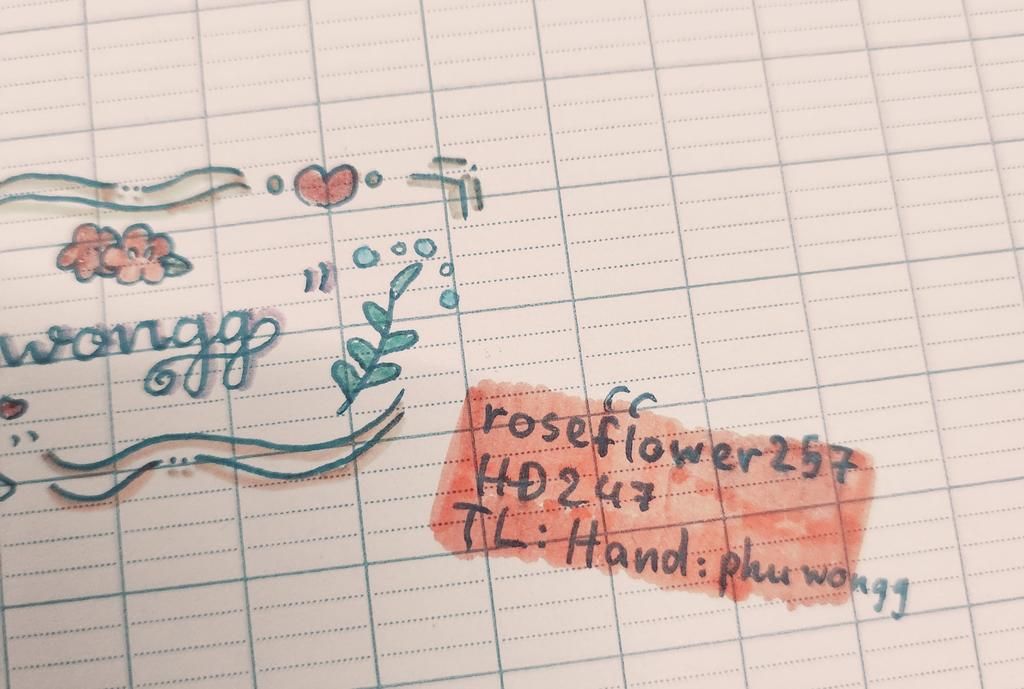 ”
wongg
roseflower257
HĐ247
TL: Hand: phuwongg